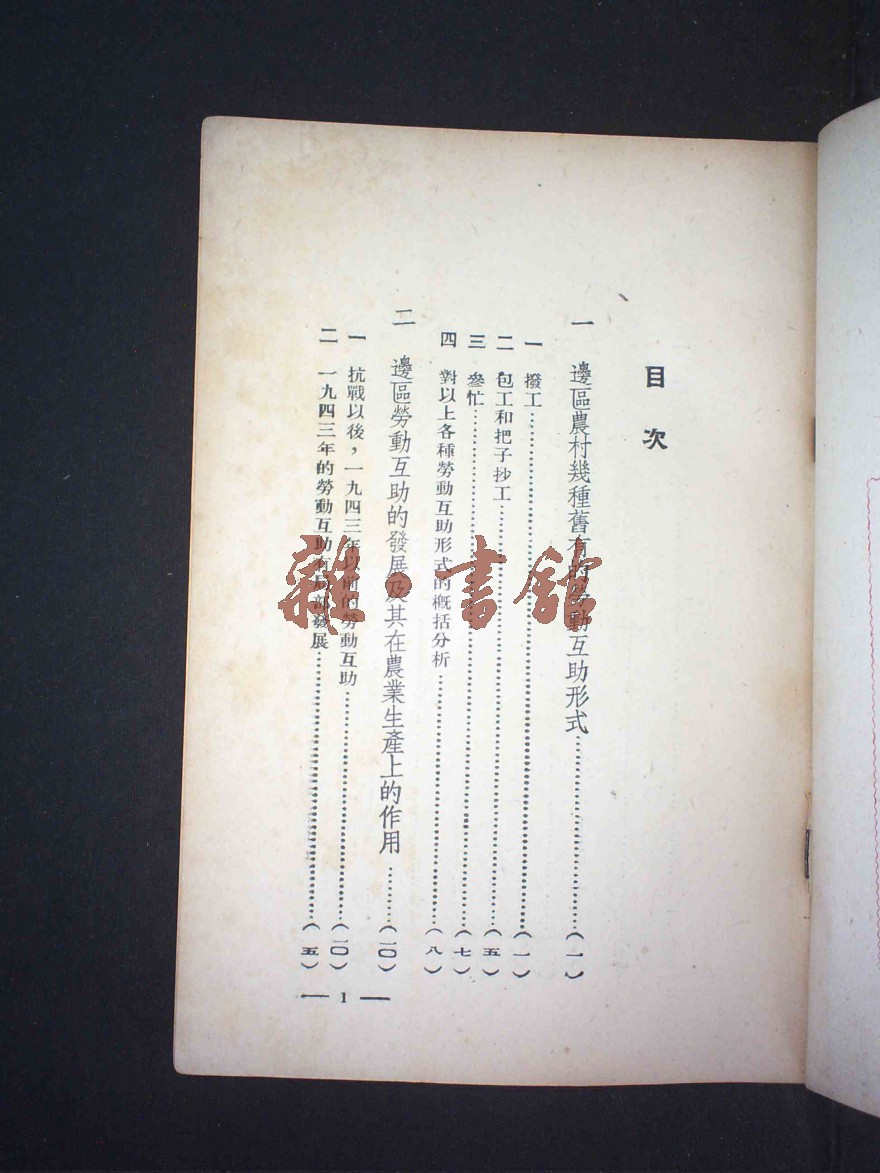 目次
一 邊區農村幾種舊有的勞動互助形式……(一)
一 撥工……(一)
二 包工和把子抄工……(五)
三 參忙……(七)
四 對以上各種勞動互助形式的概括分析……(八)
二 邊區勞動互助的發展及其在農業生產上的作用……(一〇)
一 抗戰以後，一九四三年以前的勞動互助……(一〇)
二 一九四三年的勞動互助有局部發展……(五)
— 1 —
雜·書館